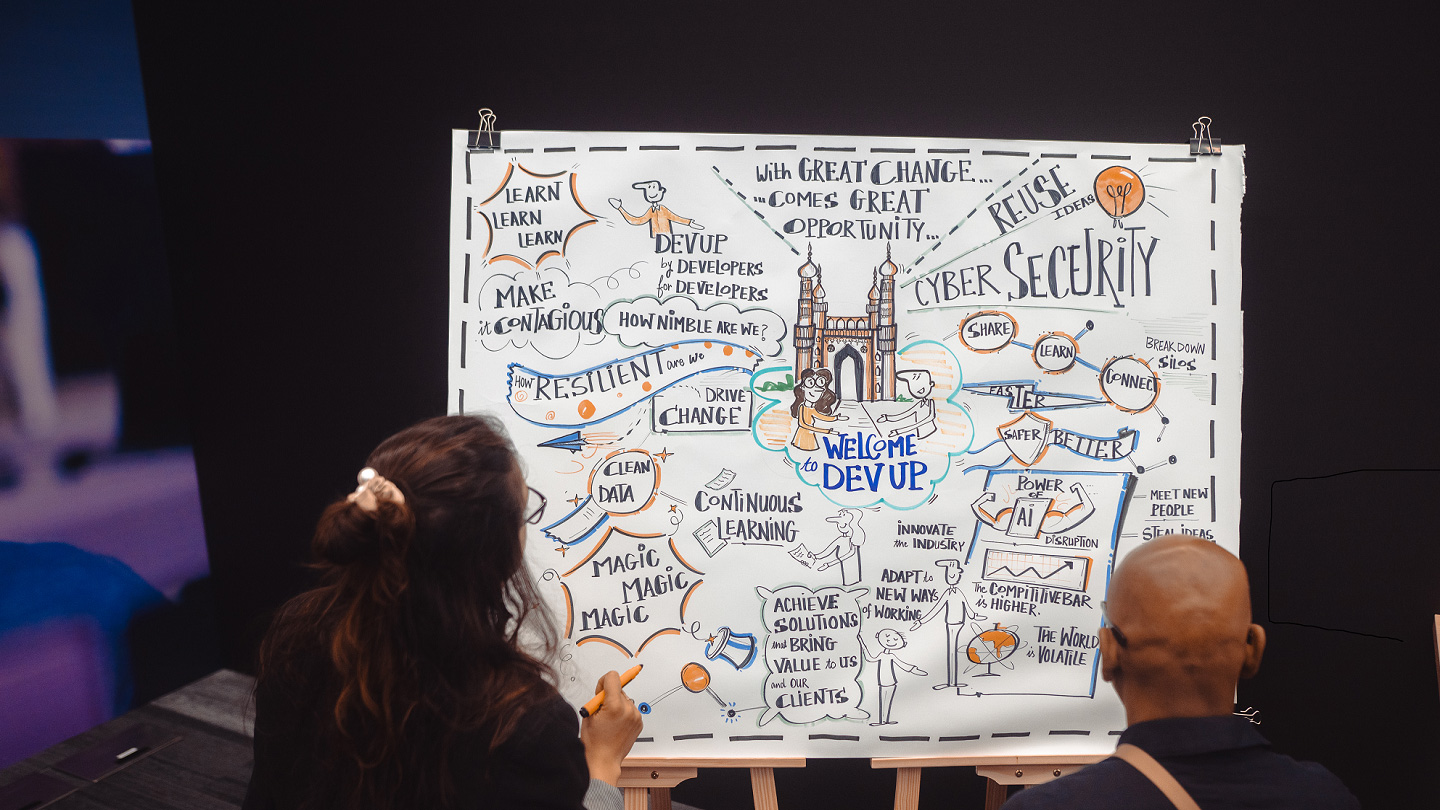 LEARN
LEARN
LEARN
DEVUP
by DEVELOPERS
for DEVELOPERS
MAKE
it CONTAGIOUS
HOW NIMBLE ARE WE?
HOW RESILIENT are we
DRIVE
CHANGE
With GREAT CHANGE...
...COMES GREAT
OPPORTUNITY...
REUSE
IDEAS
CYBER SECURITY
SHARE
LEARN
CONNEC
BREAKDOWN
SILOS
FASTER
SAFER
BETTER
WELCOME
to DEV UP
CLEAN
DATA
CONTINUOUS
LEARNING
MAGIC
MAGIC
MAGIC
ACHIEVE
SOLUTIONS
that BRING
VALUE to US
and OUR
CLIENTS
INNOVATE
the INDUSTRY
ADAPT to
NEW WAYS
of WORKING
POWER
OF
AI
DISRUPTION
The COMPITITIVE BAR
is HIGHER.
THE WORLD
is VOLATILE
MEET NEW
PEOPLE
STEAL IDEAS